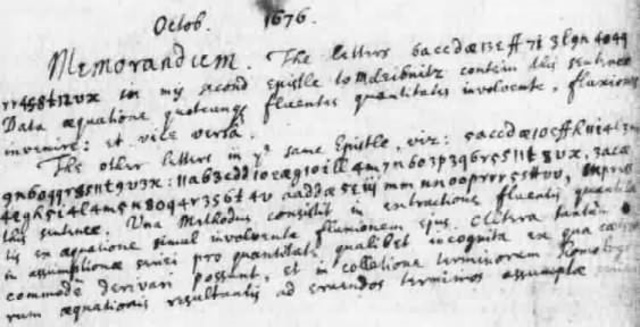 Octob. 1676.
Memorandum. The letters 6accdæ13eff7i3l9n4o4q
rr4s8t12vx in my second epistle to M. Leibnitz contein this sentence
Data æquatione quotcunq fluentes quantitates involvente, fluxiones
invenire: et vice versa.
The other letters in yͤ same Epistle, viz: 5accdæ10effh
9n6oqqr8s11t9v3x: 11ab3cdd10eæg10ill4m7n6o3p3q6r5s11t8vx, 3acæ
4egh5i4l4m5n8oq4r3s6t4v aaddæ
this sentence. Una Methodus consistit in extractione fluentis quantita
tis ex æquatione simul involvente fluxionem ejus. Altera tantum
in assumptione seriei pro quantitate qualibet incognita ex qua cæte
commodè derivari possunt, et in collatione terminorum homolog
rum æquationis resultantis ad eruendos terminos assumptæ seriei